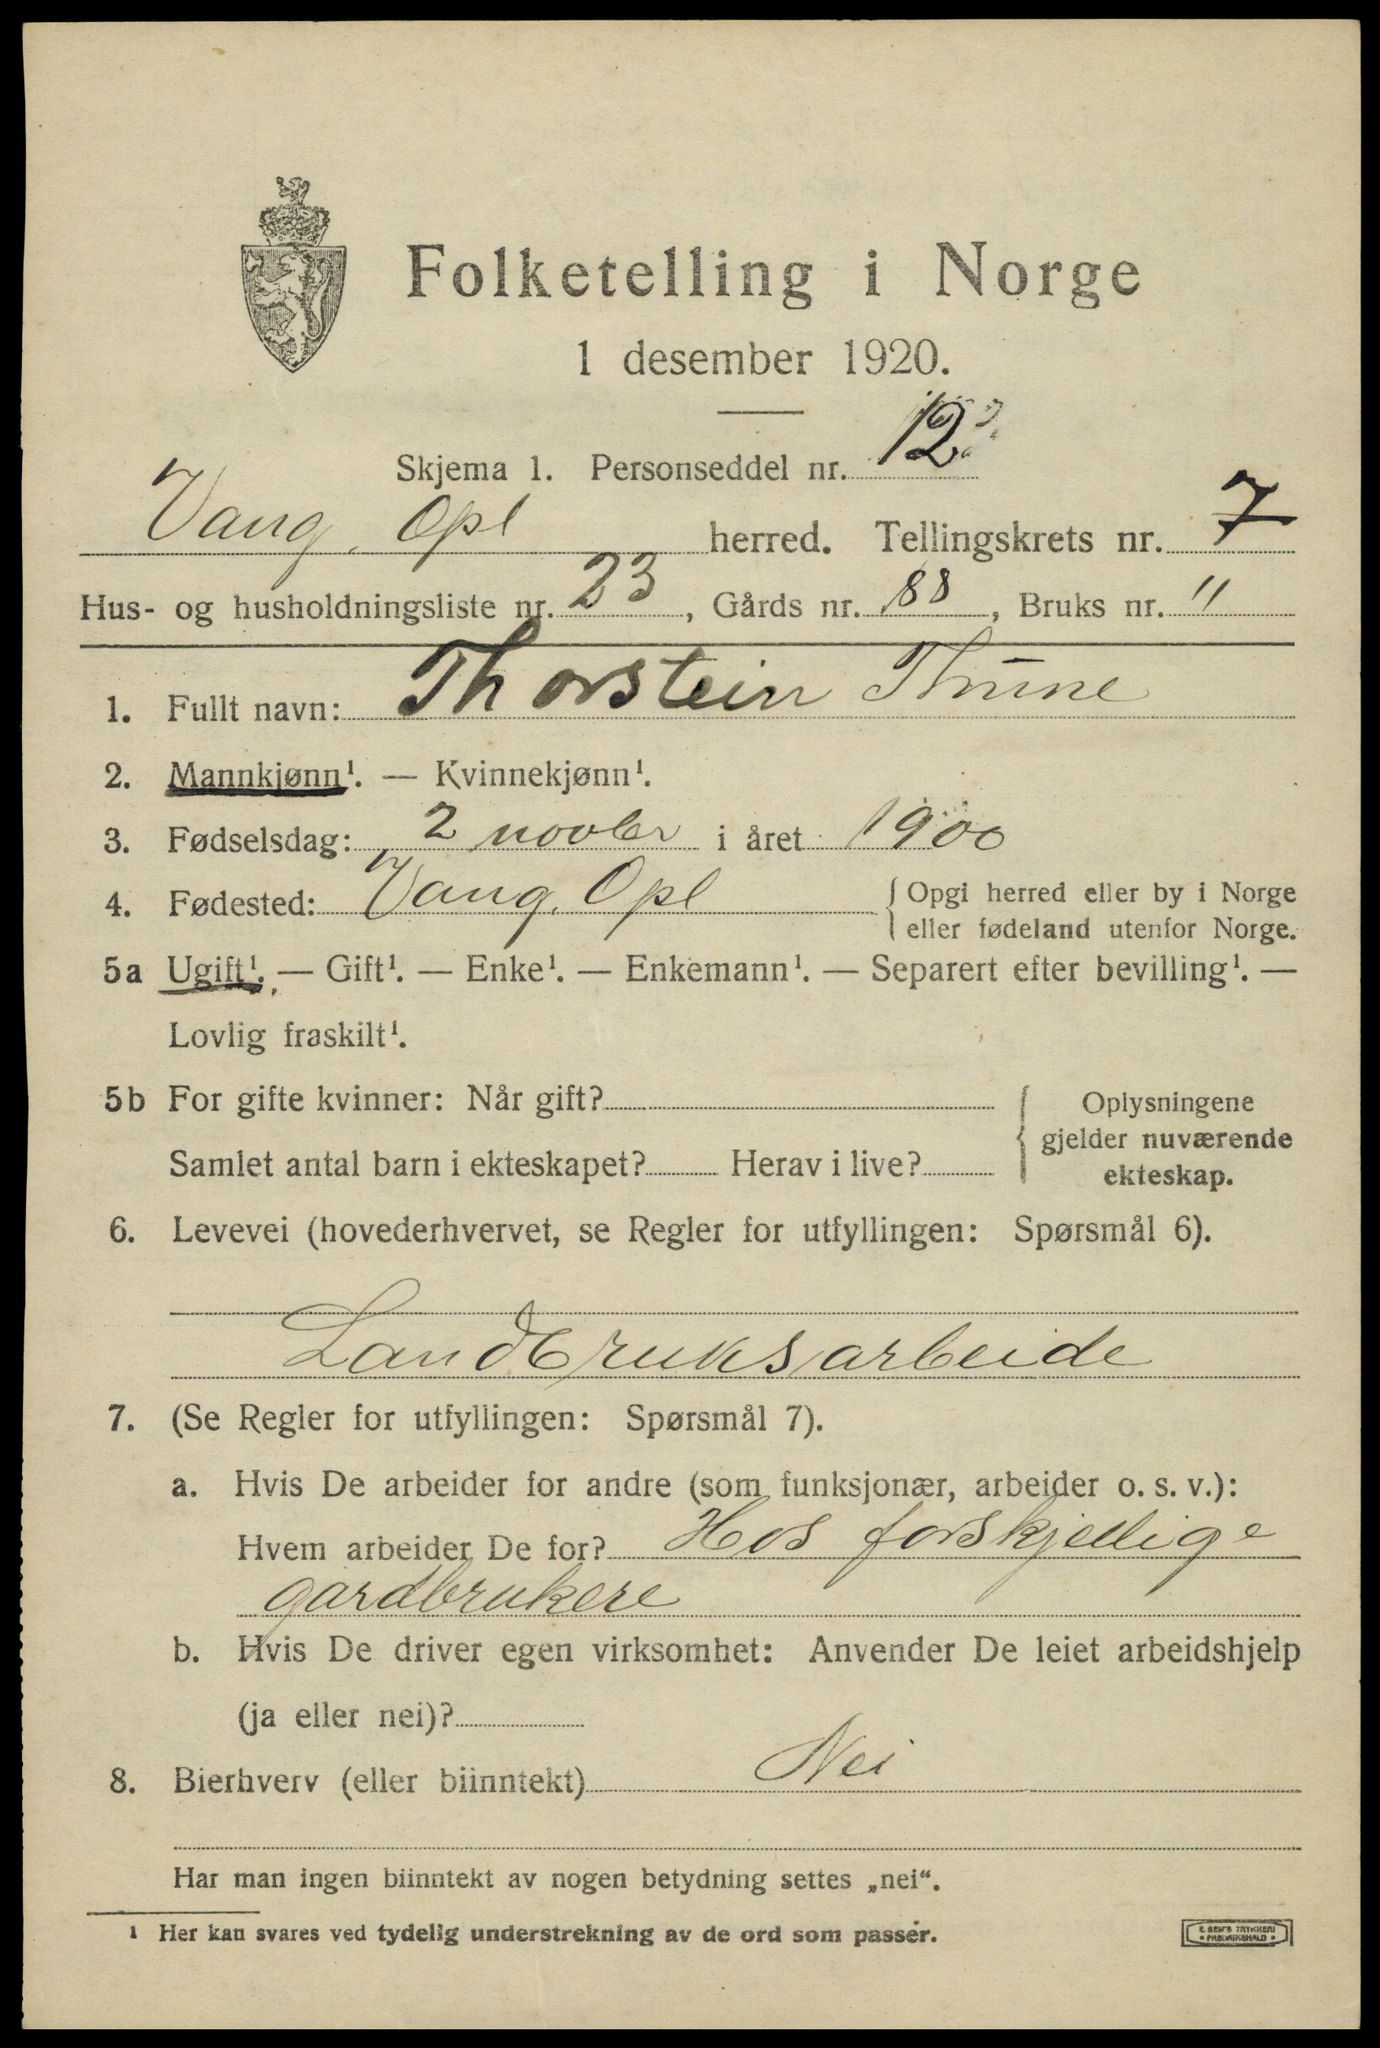 Folketelling i Norge
1 desember 1920.
Skjema 1. Personseddel nr. 12
Vang, Opl herred. Tellingskrets nr. 7
Hus- og husholdningsliste nr. 23, Gårds nr. 88, Bruks nr. "
1. Fullt navn: Thorstein Thune
2. Mannkjønn¹. — Kvinnekjønn¹.
3. Fødselsdag: 2 novbr i året 1900
4. Fødested: Vang, Opl { Opgi herred eller by i Norge
eller fødeland utenfor Norge.
5a Ugift¹. — Gift¹. — Enke¹. — Enkemann¹. — Separert efter bevilling¹. —
Lovlig fraskilt¹.
5b For gifte kvinner: Når gift?
Samlet antal barn i ekteskapet? Herav i live?
{ Oplysningene
gjelder nuværende
ekteskap.
6. Levevei (hovederhvervet, se Regler for utfyllingen: Spørsmål 6).
Landbruksarbeide
7. (Se Regler for utfyllingen: Spørsmål 7).
a. Hvis De arbeider for andre (som funksjonær, arbeider o. s. v.):
Hvem arbeider De for? Hos forskjellige
gardbrukere
b. Hvis De driver egen virksomhet: Anvender De leiet arbeidshjelp
(ja eller nei)?
8. Bierhverv (eller biinntekt) Nei
Har man ingen biinntekt av nogen betydning settes „nei“.
¹ Her kan svares ved tydelig understrekning av de ord som passer.
E. SEM'S TRYKKERI
FREDRIKSHALD